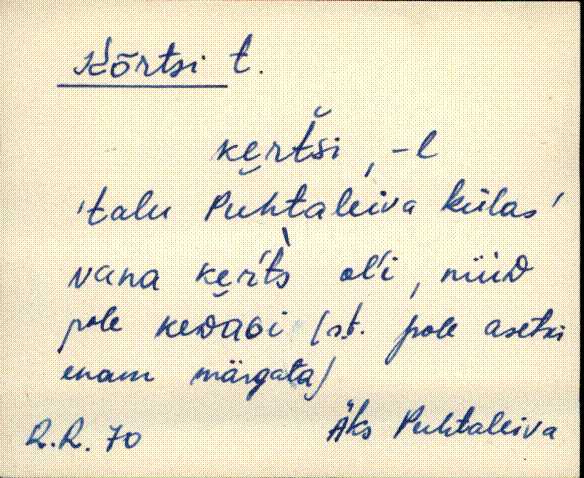 Kõrtsi t.
kȩrtši, -l
'talu Puhtaleiva külas'
vana kȩr̀ts ol'i, nüiᴅ
pole keᴅaɢi (st. pole asetki
enam märgata)
R.R. 70 Äks Puhtaleiva